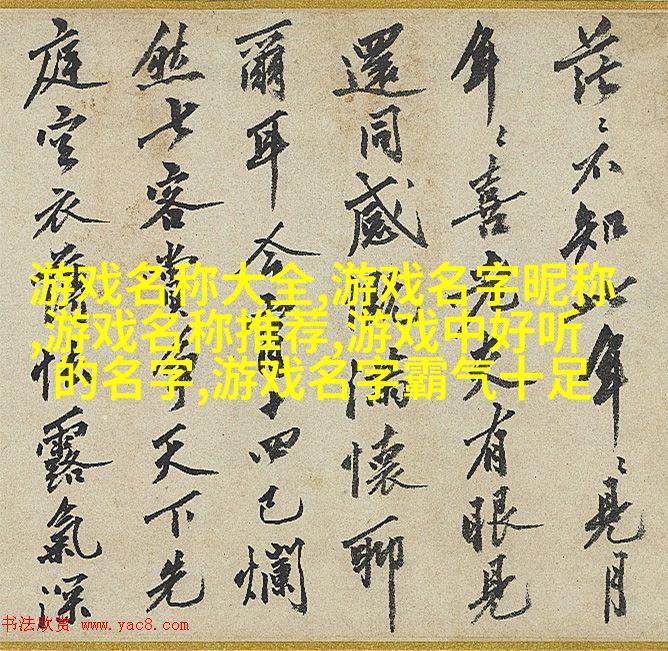 茫〻不知此年〻見月
年〻喜老夫有眼見
還同感慨滿懷聊
爾耳今宵十四已爛
然七客賞天下先
庭空衣薄怯露氣深
游戏名称大全,游戏名字昵称
,游戏名称推荐,游戏中好听
的名字,游戏名字霸气十足
书法欣赏 www.yac8.com